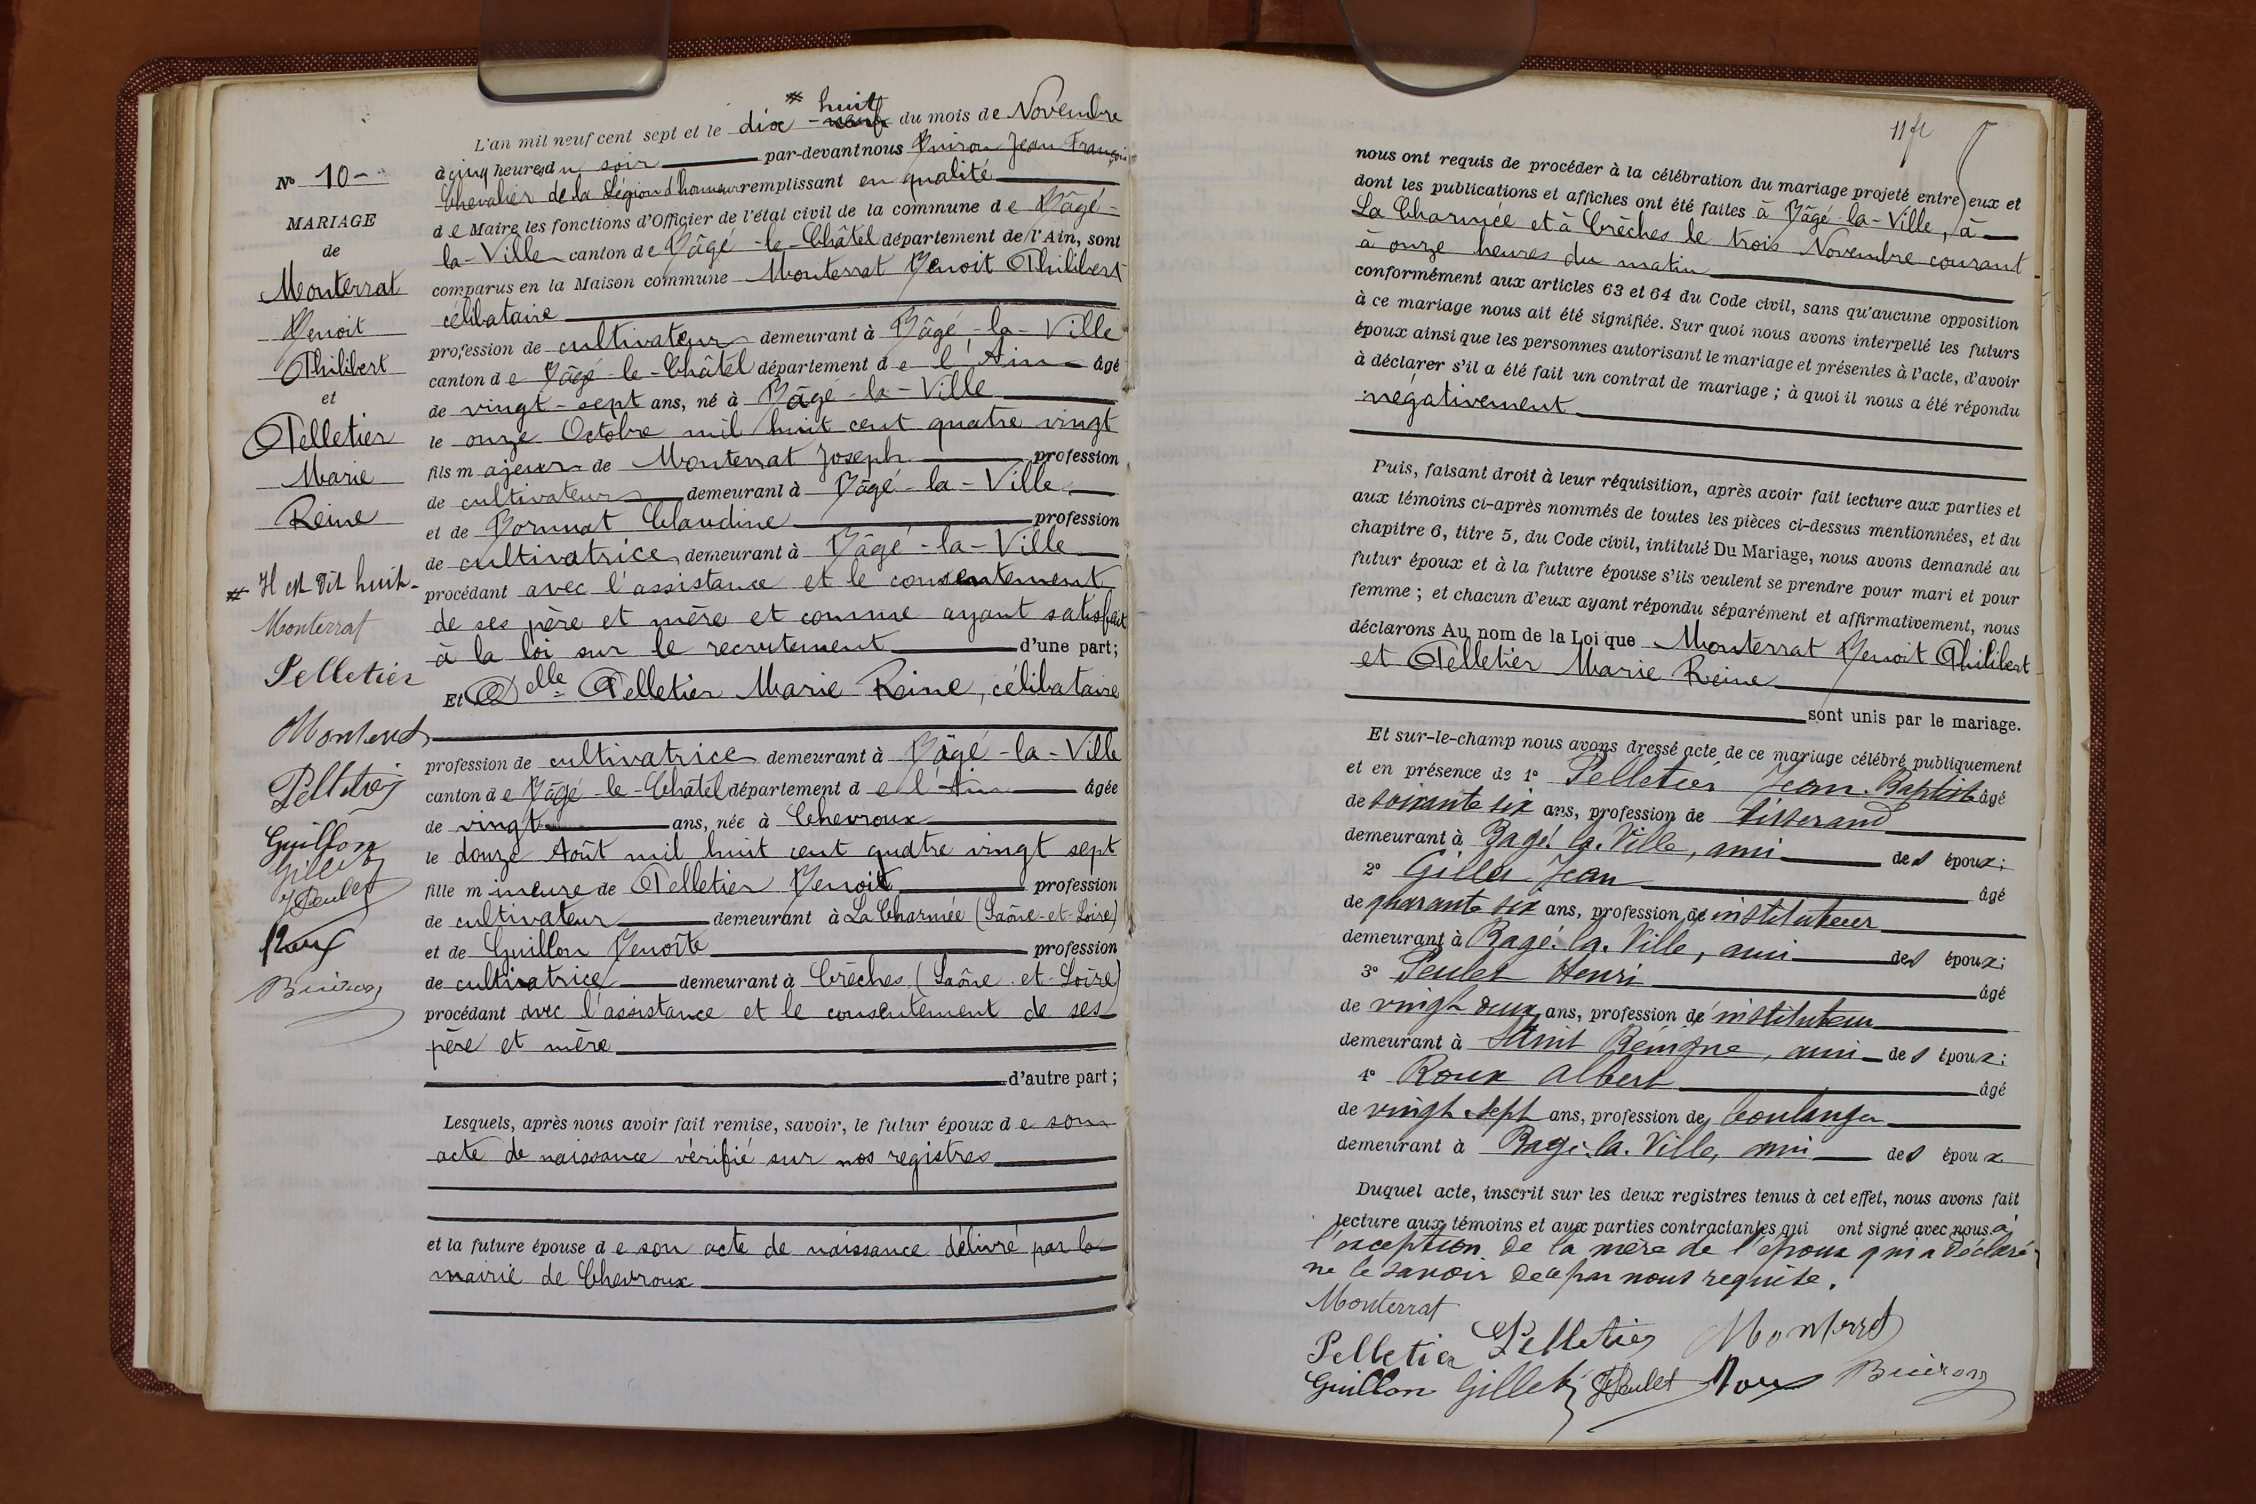 N° 10
MARIAGE
de
Monterrat
Benoit
Philibert
et
Pelletier
Marie
Reine
# Il est dit huit
Monterrat
Pelletier
Monterrat
Pelletier
Guillon
Gillet
Peulet
Roux
Buiron
# huit
L'an mil neuf cent sept et le dix - neuf du mois de Novembre
à cinq heures du soir par-devant nous Buiron Jean François
Chevalier de la Légion d'honneur remplissant en qualité
de Maire les fonctions d'Officier de l'état civil de la commune de Bâgé-
la-Ville canton de Bâgé-le-Châtel département de l'Ain, sont
comparus en la Maison commune Monterrat Benoit Philibert
célibataire
profession de cultivateur demeurant à Bâgé-la-Ville
canton de Bâgé-le-Châtel département de l'Ain âgé
de vingt-sept ans, né à Bâgé-la-Ville
le onze Octobre mil huit cent quatre vingt
fils majeur de Monterrat Joseph profession
de cultivateur demeurant à Bâgé-la-Ville
et de Bornuat Claudine profession
de cultivatrice demeurant à Bâgé-la-Ville
procédant avec l'assistance et le consentement
de ses père et mère et comme ayant satisfait
à la loi sur le recrutement d'une part;
Et Delle Pelletier Marie Reine, célibataire
profession de cultivatrice demeurant à Bâgé-la-Ville
canton de Bâgé-le-Châtel département de l'Ain âgée
de vingt ans, née à Chevroux
le douze Août mil huit cent quatre vingt sept
fille mineure de Pelletier Benoit profession
de cultivateur demeurant à La Charmée (Saône-et-Loire)
et de Guillon Benoîte profession
de cultivatrice demeurant à Crèches (Saône-et-Loire)
procédant avec l'assistance et le consentement de ses
père et mère
d'autre part;
Lesquels, après nous avoir fait remise, savoir, le futur époux de son
acte de naissance vérifié sur nos registres
et la future épouse de son acte de naissance délivré par la
mairie de Chevroux
11 fc
nous ont requis de procéder à la célébration du mariage projeté entre eux et
dont les publications et affiches ont été faites à Bâgé-la-Ville, à
La Charmée et à Crèches le trois Novembre courant
à onze heures du matin
conformément aux articles 63 et 64 du Code civil, sans qu'aucune opposition
à ce mariage nous ait été signifiée. Sur quoi nous avons interpellé les futurs
époux ainsi que les personnes autorisant le mariage et présentes à l'acte, d'avoir
à déclarer s'il a été fait un contrat de mariage; à quoi il nous a été répondu
négativement
Puis, faisant droit à leur réquisition, après avoir fait lecture aux parties et
aux témoins ci-après nommés de toutes les pièces ci-dessus mentionnées, et du
chapitre 6, titre 5, du Code civil, intitulé Du Mariage, nous avons demandé au
futur époux et à la future épouse s'ils veulent se prendre pour mari et pour
femme; et chacun d'eux ayant répondu séparément et affirmativement, nous
déclarons Au nom de la Loi que Monterrat Benoit Philibert
et Pelletier Marie Reine
sont unis par le mariage.
Et sur-le-champ nous avons dressé acte de ce mariage célébré publiquement
et en présence de 1° Pelletier Jean-Baptiste âgé
de soixante six ans, profession de tisserand
demeurant à Bagé-la-Ville, ami des époux;
2° Gillet Jean âgé
de quarante six ans, profession de instituteur
demeurant à Bagé-la-Ville, ami des époux;
3° Peulet Henri âgé
de vingt deux ans, profession d'instituteur
demeurant à Saint Bénigne, ami des époux;
4° Roux Albert âgé
de vingt sept ans, profession de boulanger
demeurant à Bagé-la-Ville, ami des époux
Duquel acte, inscrit sur les deux registres tenus à cet effet, nous avons fait
lecture aux témoins et aux parties contractantes qui ont signé avec nous à
l'exception de la mère de l'époux qui a déclaré
ne le savoir de ce par nous requise.
Monterrat
Pelletier Pelletier Monterrat
Guillon Gillet Peulet Roux Buiron